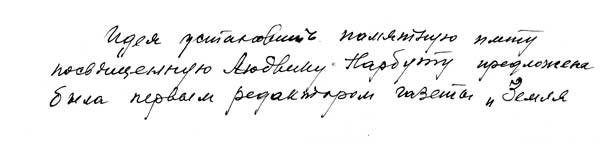 Идея установить памятную плиту
посвященную Людвику Нарбутту предложена
была первым редактором газеты „Земля